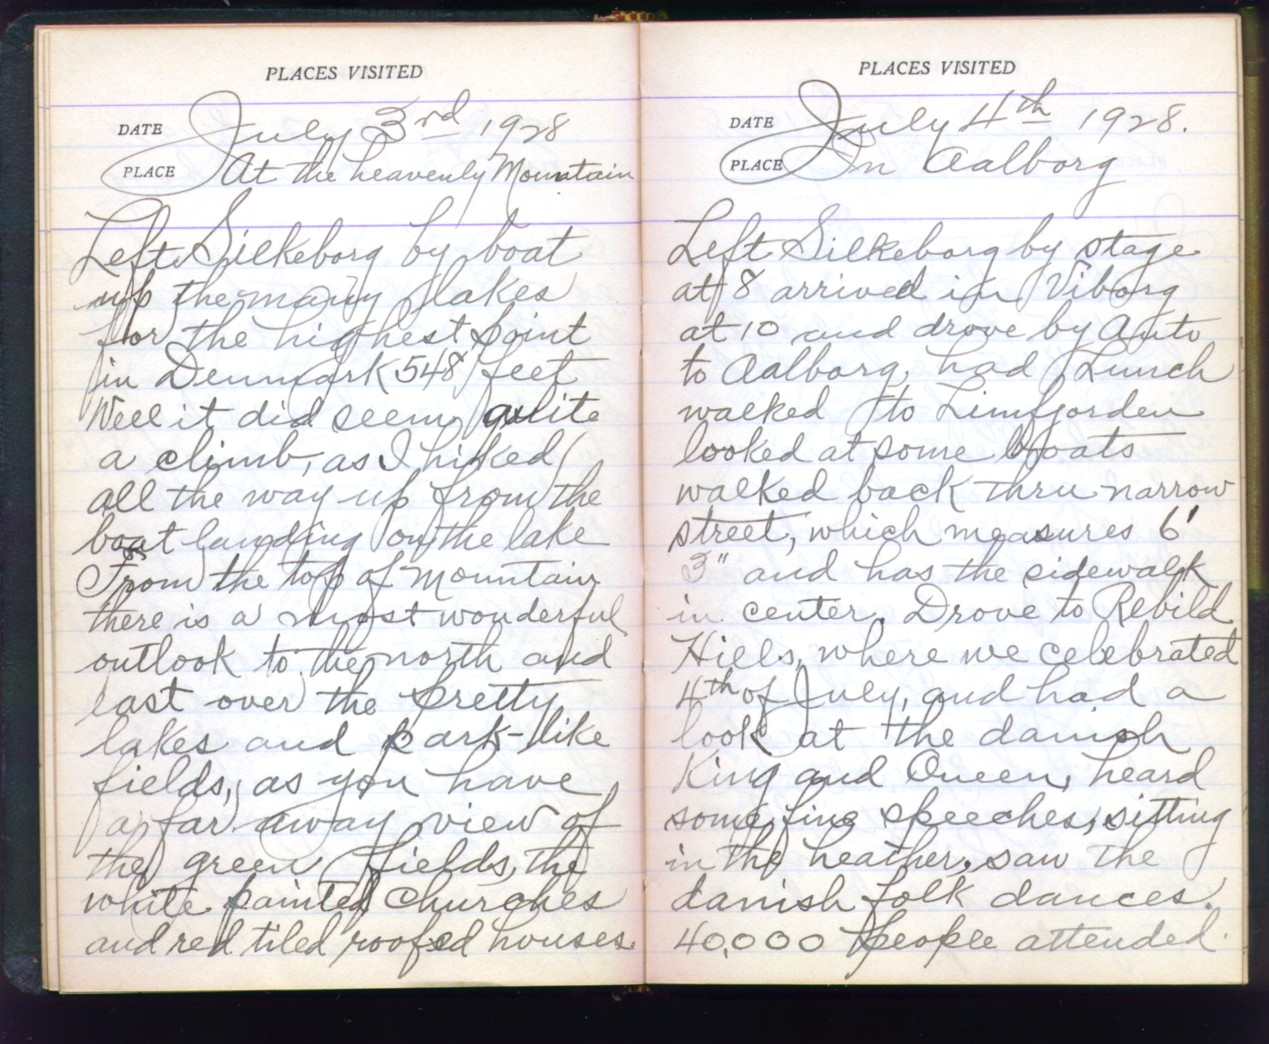 PLACES VISITED
DATE July 3rd 1928
PLACE At the heavenly Mountain
Left Silkeborg by boat
up the many lakes
for the highest point
in Denmark 548 feet
Well it did seem quite
a climb, as I hiked
all the way up from the
boat landing on the lake
From the top of mountain
there is a most wonderful
outlook to the north and
east over the pretty
lakes and park-like
fields, as you have
a far away view of
the green fields, the
white painted churches
and red tiled roofed houses.
PLACES VISITED
DATE July 4th 1928.
PLACE In Aalborg
Left Silkeborg by stage
at 8 arrived in Viborg
at 10 and drove by Auto
to Aalborg, had Lunch
walked to Limfjorden
looked at some boats
walked back thru narrow
street, which measures 6'
3" and has the sidewalk
in center. Drove to Rebild
Hills, where we celebrated
4th of July, and had a
look at the danish
King and Queen, heard
some fine speeches, sitting
in the heather, saw the
danish folk dances.
40,000 people attended.